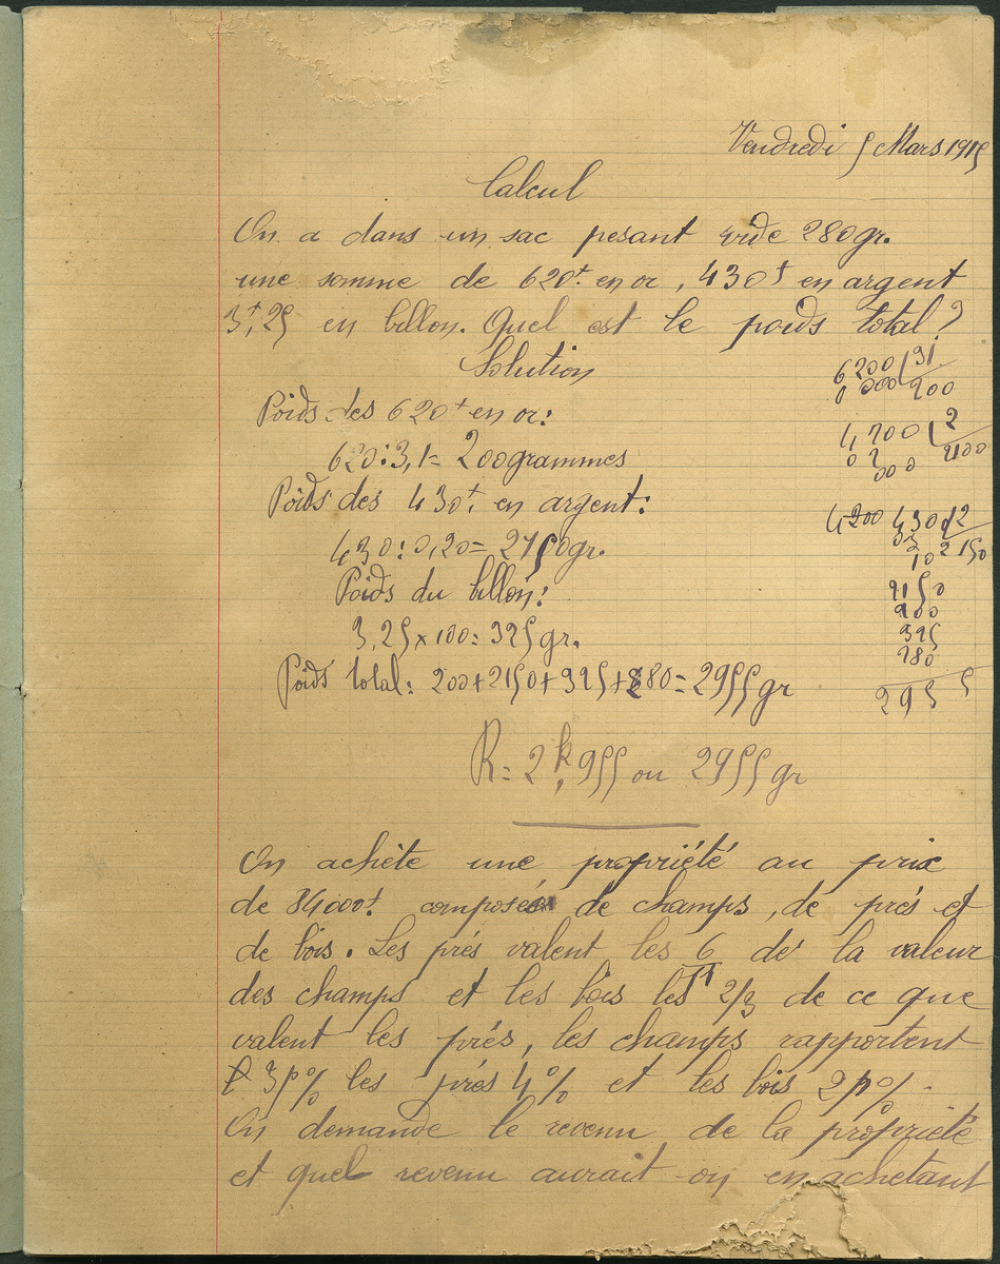 Vendredi 5 Mars 1915
Calcul
On a dans un sac pesant vide 280gr.
une somme de 620f. en or, 430f en argent
3f,25 en billon. Quel est le poids total?
Solution
6200 | 31
0 000 200
Poids des 620f en or:
4,300 | 2
03 2100
000
620:3,1= 200grammes
Poids des 430f. en argent:
4200 430 | 2
03 2150
10
430:0,20= 2150gr.
Poids du billon:
2150
200
325
280
2955
3,25x100= 325gr.
Poids total: 200+2150+325+280= 2955gr
R= 2k,955 ou 2955gr
On achète une propriété au prix
de 84000f. composée de champs, de prés et
de bois. Les prés valent les 6/11 de la valeur
des champs et les bois les 2/3 de ce que
valent les prés, les champs rapportent
3p% les prés 4% et les bois 2p%.
On demande le revenu de la propriété
et quel revenu aurait on en achetant